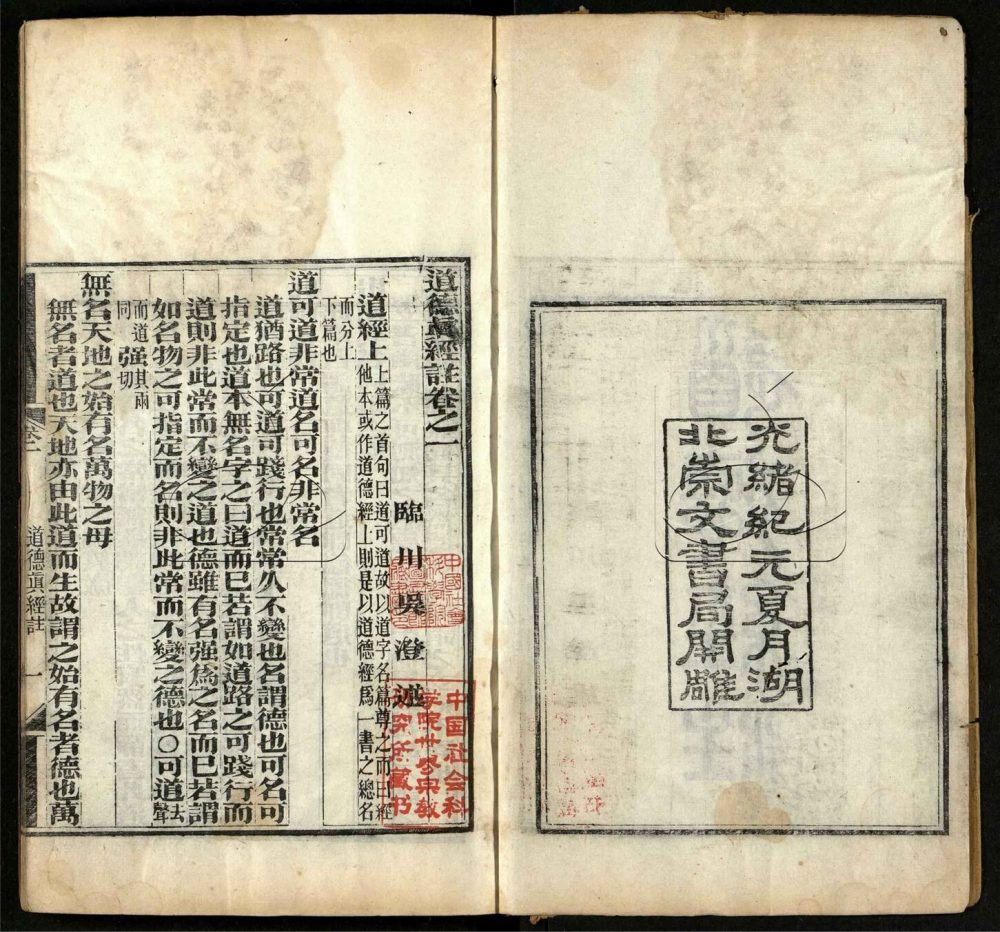 光緒紀元夏月湖
北崇文書局開雕
道德眞經註卷之一
臨川吳澄述
道經上
上篇之首句曰道可道故以道字名篇尊之而曰經
他本或作道德經上則是以道德經爲一書之總名
而分上
下篇也
道可道非常道名可名非常名
道猶路也可道可踐行也常常久不變也名謂德也可名可
指定也道本無名字之曰道而已若謂如道路之可踐行而
道則非此常而不變之道也德雖有名强爲之名而已若謂
如名物之可指定而名則非此常而不變之德也○可道去聲
而道同
强其兩切
無名天地之始有名萬物之母
無名者道也天地亦由此道而生故謂之始有名者德也萬
卷一
道德眞經註
一
中国社会科
学院世界宗教
研究所藏书